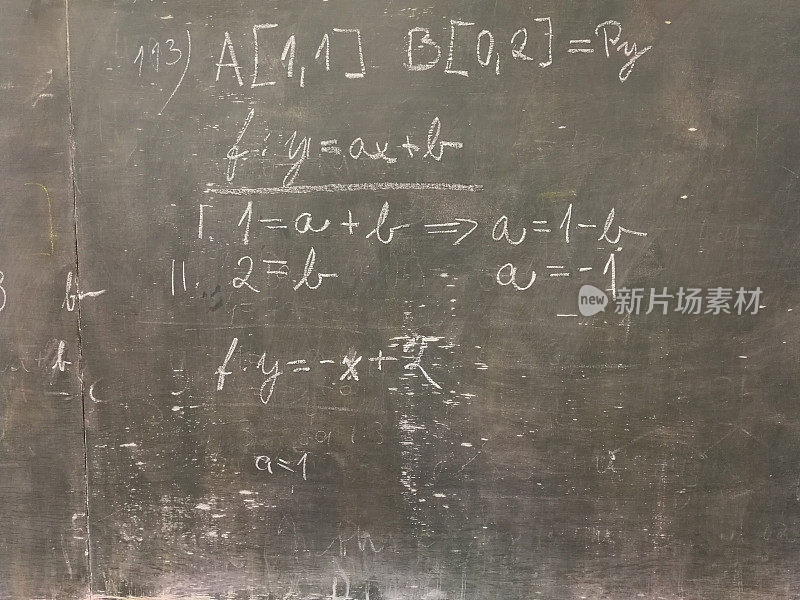 113) A[1,1] B[0,2] = Py
f: y = ax + b
I. 1 = a + b ⇒ a = 1 - b
II. 2 = b a = -1
f: y = -x + 2
a = 1
b
b
new 新片场素材